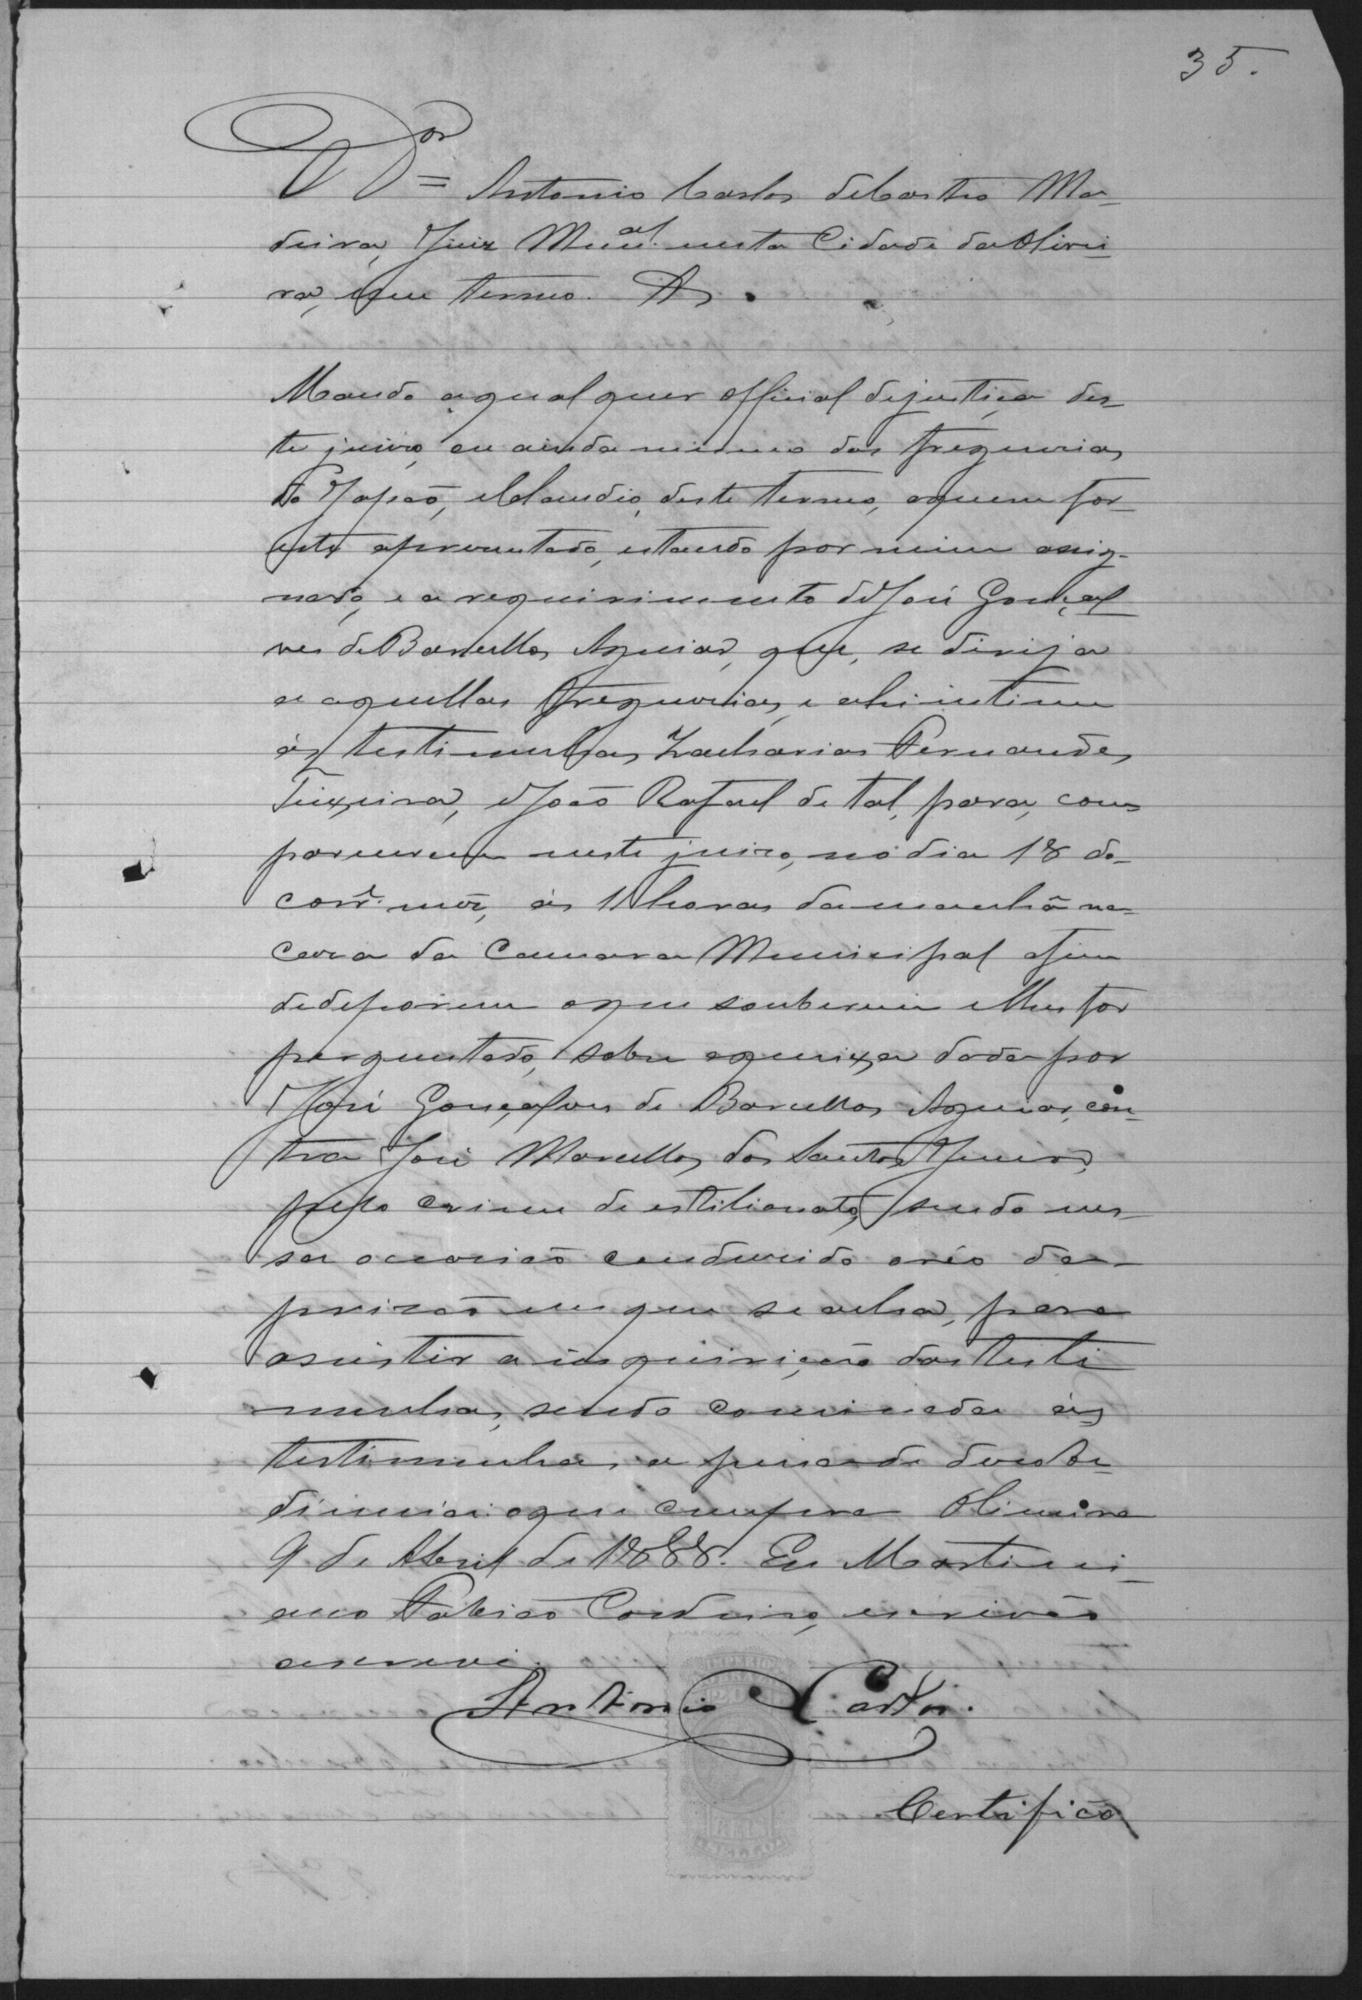 35.
O Dor= Antonio Carlos de Castro Ma-
deira, Juiz Mun.al nesta Cidade da Olivei-
ra, e seu termo. &
Mando a qual quer official de justiça des-
te juizo, ou ainda mesmo das freguesias
do Japão, e Claudio, deste termo, a quem for
este apresentado, estando por mim assig-
nado, e a requirimento de José Gonçal-
ves de Barcellos Aguiar, que, se dirija
a aquellas freguesias, e ahi intime
ás testimunhas Zacharias Fernandes
Teixeira, e João Rafael de tal, para, com-
parecerem neste juizo, nó dia 18 do
corre. mez, ás 11 horas da manhã na
casa da Camara Municipal afim
de deporem o que souberem e lhes for
perguntado, sobre a queixa dada por
José Gonçalves de Barcellos Aguiar, con-
tra José Marcellos dos Santos Junior,
pelo crime de estilionato, sendo nes-
sa occasião conduzido o réo da
prizão em que se acha, para
assistir a inquirição das testi
munhas, sendo cominada ás
testimunhas a pena de desobe-
diencia: o que cumpra Oliveira
9 de Abril de 1888. Eu Martini-
ano Fabião Cordeiro, escrivão
escrevi.
Antonio Carlos.
IMPERIO
REIS
SELLO
Certifico